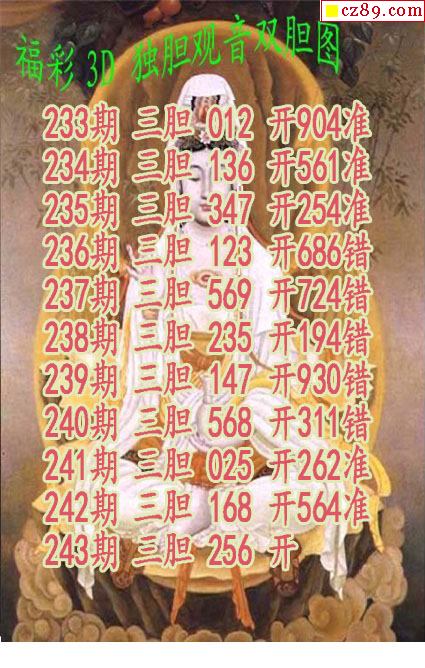 cz89.com
福彩 3D 独胆观音双胆图
233期 三胆 012 开904准
234期 三胆 136 开561准
235期 三胆 347 开254准
236期 三胆 123 开686错
237期 三胆 569 开724错
238期 三胆 235 开194错
239期 三胆 147 开930错
240期 三胆 568 开311错
241期 三胆 025 开262准
242期 三胆 168 开564准
243期 三胆 256 开